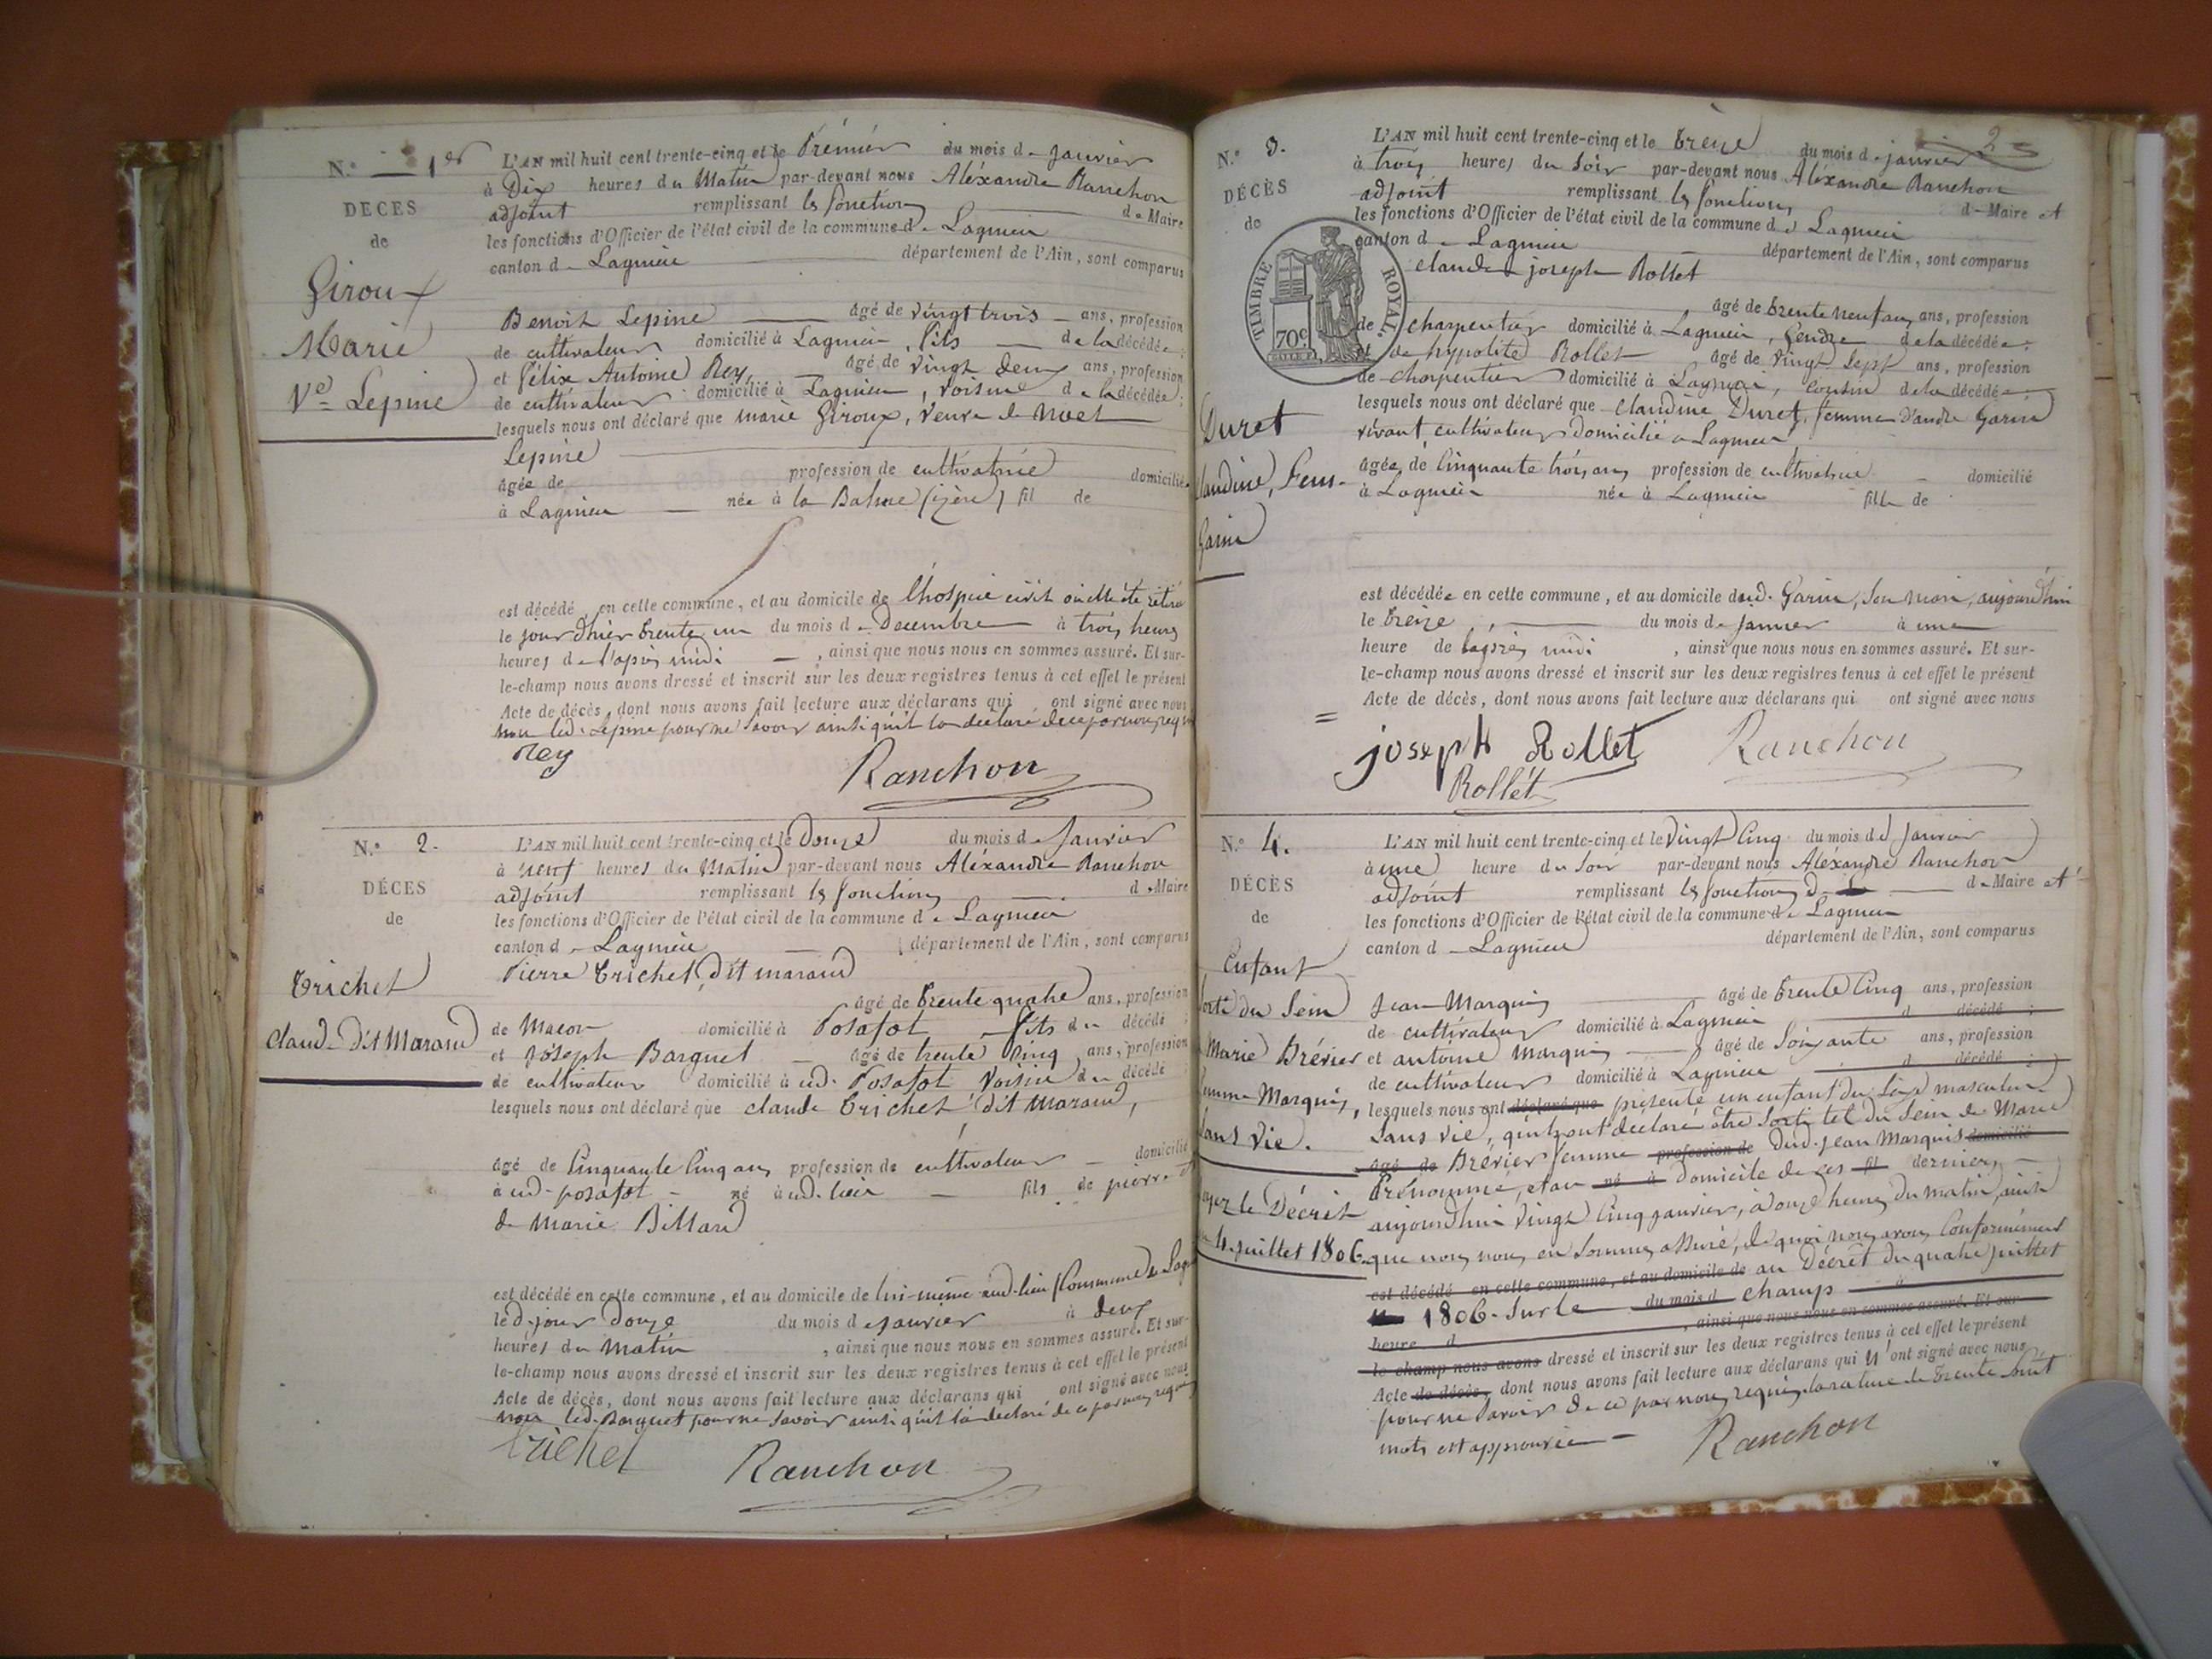 N.o 1er
DÉCES
de
Giroux
Marie
Ve Lepine
L'AN mil huit cent trente-cinq et le Prémiér du mois d - janvier
à Dix heures du Matin par-devant nous Aléxandre Ranchon
adjoint remplissant les fonctions d - Maire
les fonctions d'Officier de l'état civil de la commune d - Lagnieu
canton d - Lagnieu département de l'Ain, sont comparus
Benoit Lepine âgé de vingt trois ans, profession
de cultivateur domicilié à Lagnieu, fils de la décédée;
et félix Antoine Rey, âgé de vingt deux ans, profession
de cultivateur domicilié à Lagnieu, voisin de la décédée;
lesquels nous ont déclaré que marie Giroux, veuve de Noel
Lepine
âgée de profession de cultivatrice domicilié
à Lagnieu née à la Balme (izère) fil de
est décédé en cette commune, et au domicile de l'hospice civil où elle été retirée
le jour d'hier trente un du mois de Decembre à trois heures
heures de l'après midi, ainsi que nous nous en sommes assuré. Et sur-
le-champ nous avons dressé et inscrit sur les deux registres tenus à cet effet le présent
Acte de décès, dont nous avons fait lecture aux déclarans qui ont signé avec nous
non led. Lepine pour ne savoir ainsi qu'il l'a déclaré de ce par nous requis
Rey
Ranchon
N.o 2.
DÉCES
de
Trichet
Claude dit Maraud
L'AN mil huit cent trente-cinq et le Douze du mois de janvier
à neuf heures du Matin par-devant nous Aléxandre Ranchon
adjoint remplissant les fonctions d - Maire
les fonctions d'Officier de l'état civil de la commune de Lagnieu
canton d - Lagnieu département de l'Ain, sont comparus
Pierre Trichet, dit maraud
âgé de trente quatre ans, profession
de Macon domicilié à Posafot fils du décédé;
et Joseph Barquet âgé de trente cinq ans, profession
de cultivateur domicilié à ud. Posafot voisin du décédé
lesquels nous ont déclaré que claude Trichet dit Maraud,
âgé de Cinquante Cinq ans profession de cultivateur domicilié
à ud. posafot né à ud. lieu fils de pierre et
de Marie Billard
est décédé en cette commune, et au domicile de lui-même aud. lieu (Commune de Lagn
le d. jour Douze du mois de janvier à deux
heures du matin, ainsi que nous nous en sommes assuré. Et sur-
le-champ nous avons dressé et inscrit sur les deux registres tenus à cet effet le présent
Acte de décès, dont nous avons fait lecture aux déclarans qui ont signé avec nous
non led. Barquet pour ne savoir ainsi qu'il l'a déclaré de ce par nous requis
Trichet
Ranchon
2
N.o 3.
DÉCÈS
de
TIMBRE ROYAL
70c.
Duret
laudine, Fem.
Garin
L'AN mil huit cent trente-cinq et le treize du mois de janvier
à trois heures du Soir par-devant nous Aléxandre Ranchon
adjoint remplissant les fonctions d - Maire et
les fonctions d'Officier de l'état civil de la commune de Lagnieu
canton d - Lagnieu département de l'Ain, sont comparus
Claude joseph Rollet
âgé de trente neuf ans ans, profession
de charpentier domicilié à Lagnieu, Gendre de la décédée;
et de hypolite Rollet âgé de vingt Sept ans, profession
de charpentier domicilié à Lagnieu, cousin de la décédée;
lesquels nous ont déclaré que Claudine Duret, femme d'andre Garin
vivant, cultivateur domicilié à Lagnieu
âgée de Cinquante trois ans profession de cultivatrice domicilié
à Lagnieu née à Lagnieu fille de
est décédée en cette commune, et au domicile dud. Garin, son mari, aujourd'hui
le treize, du mois de janvier à une
heure de l'après midi, ainsi que nous nous en sommes assuré. Et sur-
le-champ nous avons dressé et inscrit sur les deux registres tenus à cet effet le présent
Acte de décès, dont nous avons fait lecture aux déclarans qui ont signé avec nous
joseph Rollet Ranchon
Rollét
N.o 4.
DÉCÈS
de
Enfant
sorti du Sein
Marie Brévier
femme Marquis,
Sans Vie.
Voyez le Décret
4 juillet 1806.
L'AN mil huit cent trente-cinq et le Vingt Cinq du mois de janvier
à une heure du Soir par-devant nous Aléxandre Ranchon
adjoint remplissant les fonctions d - Maire et
les fonctions d'Officier de l'état civil de la commune de Lagnieu
canton d - Lagnieu département de l'Ain, sont comparus
Jean Marquis âgé de trente Cinq ans, profession
de cultivateur domicilié à Lagnieu d décédé;
et antoine Marquis âgé de Soixante ans, profession
de cultivateur domicilié à Lagnieu d décédé;
lesquels nous ont déclaré que présenté un enfant du Sexe masculin
Sans vie, qu'ils ont déclaré être Sorti tel du Sein de Marie
âgé de Brévier femme profession de dud. Jean Marquis domicilié
Prénommé, et au né à domicile de ces fil derniers
aujourd'hui vingt Cinq janvier, à onze heures du matin, ainsi
que nous nous en Sommes assuré, de quoi nous avons Conformément
est décédé en cette commune, et au domicile de au Décrêt du quatre juillet
1806. Sur le du mois d champ à
heure d, ainsi que nous nous en sommes assuré. Et sur
le-champ nous avons dressé et inscrit sur les deux registres tenus à cet effet le présent
Acte de décès, dont nous avons fait lecture aux déclarans qui n'ont signé avec nous
pour ne Savoir de ce par nous requis, la rature de trente huit
mots est approuvée
Ranchon